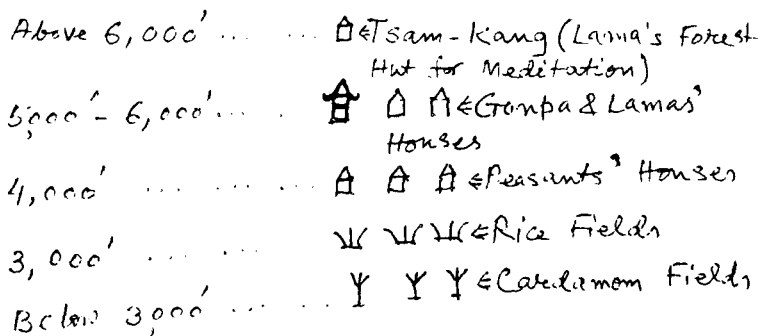 Above 6,000' ... ... Tsam-Kang (Lama's Forest
Hut for Meditation)
5,000' - 6,000' ... ... Gonpa & Lamas'
Houses
4,000' ... ... ... Peasants' Houses
3,000' ... ... Rice Fields
Below 3,000' ... ... Cardamom Fields